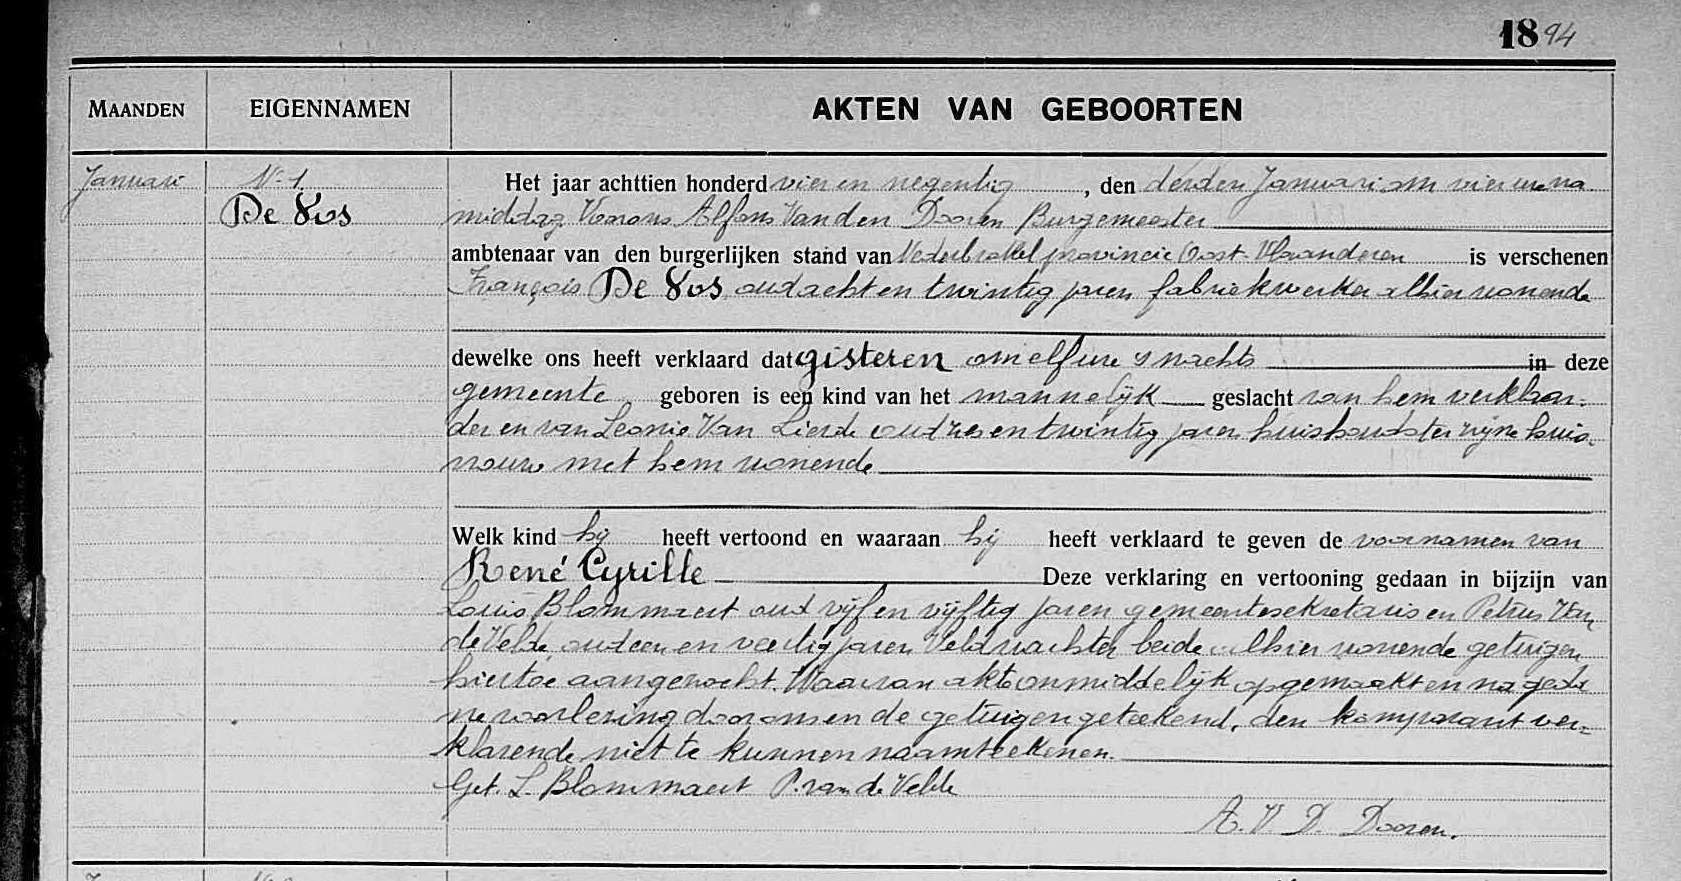 1894
MAANDEN EIGENNAMEN AKTEN VAN GEBOORTEN
Januari N. 1 Het jaar achttien honderd vier en negentig, den derden Januari om vier ure na
De Vos middag Voor ons Alfons Van den Dooren Burgemeester
ambtenaar van den burgerlijken stand van Nederbrakel provincie Oost-Vlaanderen is verschenen
François De Vos oud acht en twintig jaren fabriekwerker alhier wonende
dewelke ons heeft verklaard dat gisteren om elf ure 's nachts in deze
gemeente geboren is een kind van het mannelijk geslacht van hem verklaar-
der en van Leonie Van Lierde oud zes en twintig jaren huishoudster zijne huis-
vrouw met hem wonende
Welk kind hij heeft vertoond en waaraan hij heeft verklaard te geven de voornamen van
René Cyrille Deze verklaring en vertooning gedaan in bijzijn van
Louis Blommaert oud vijf en vijftig jaren gemeentesekretaris en Petrus Van
de Velde oud een en veertig jaren Veldwachter beide alhier wonende getuigen
hiertoe aangezocht. Waarvan akte onmiddelijk opgemaakt en na geda
ne voorlezing door ons en de getuigen geteekend, den komparant ver-
klarende niet te kunnen naamteekenen.
Get. L. Blommaert P. van de Velde
A. V. D. Dooren.